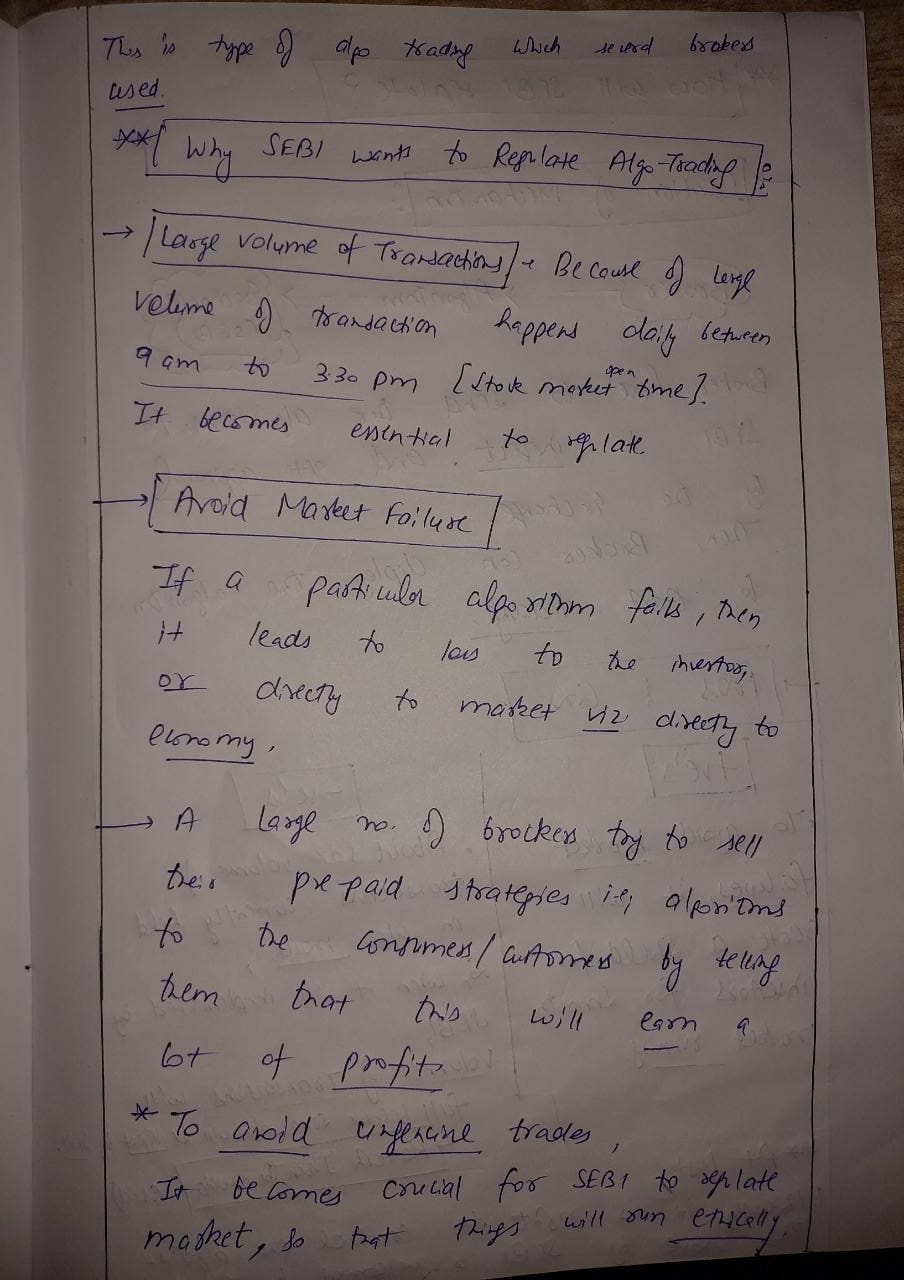 This is type of algo trading which several brokers
used.
** Why SEBI wants to Regulate Algo-Trading :
→ Large volume of Transactions → Because of large
volume of transaction happens daily between
9 am to 3:30 pm [Stock market open time].
It becomes essential to regulate
→ Avoid Market Failure
If a particular algorithm fails, then
it leads to loss to the investor,
or directly to market viz directly to
economy,
→ A large no. of brockers try to sell
their pre-paid strategies i.e; algorithms
to the consumers / customers by telling
them that this will earn a
lot of profits
* To avoid ungenuine trades,
It becomes crucial for SEBI to regulate
market, so that things will run ethically.